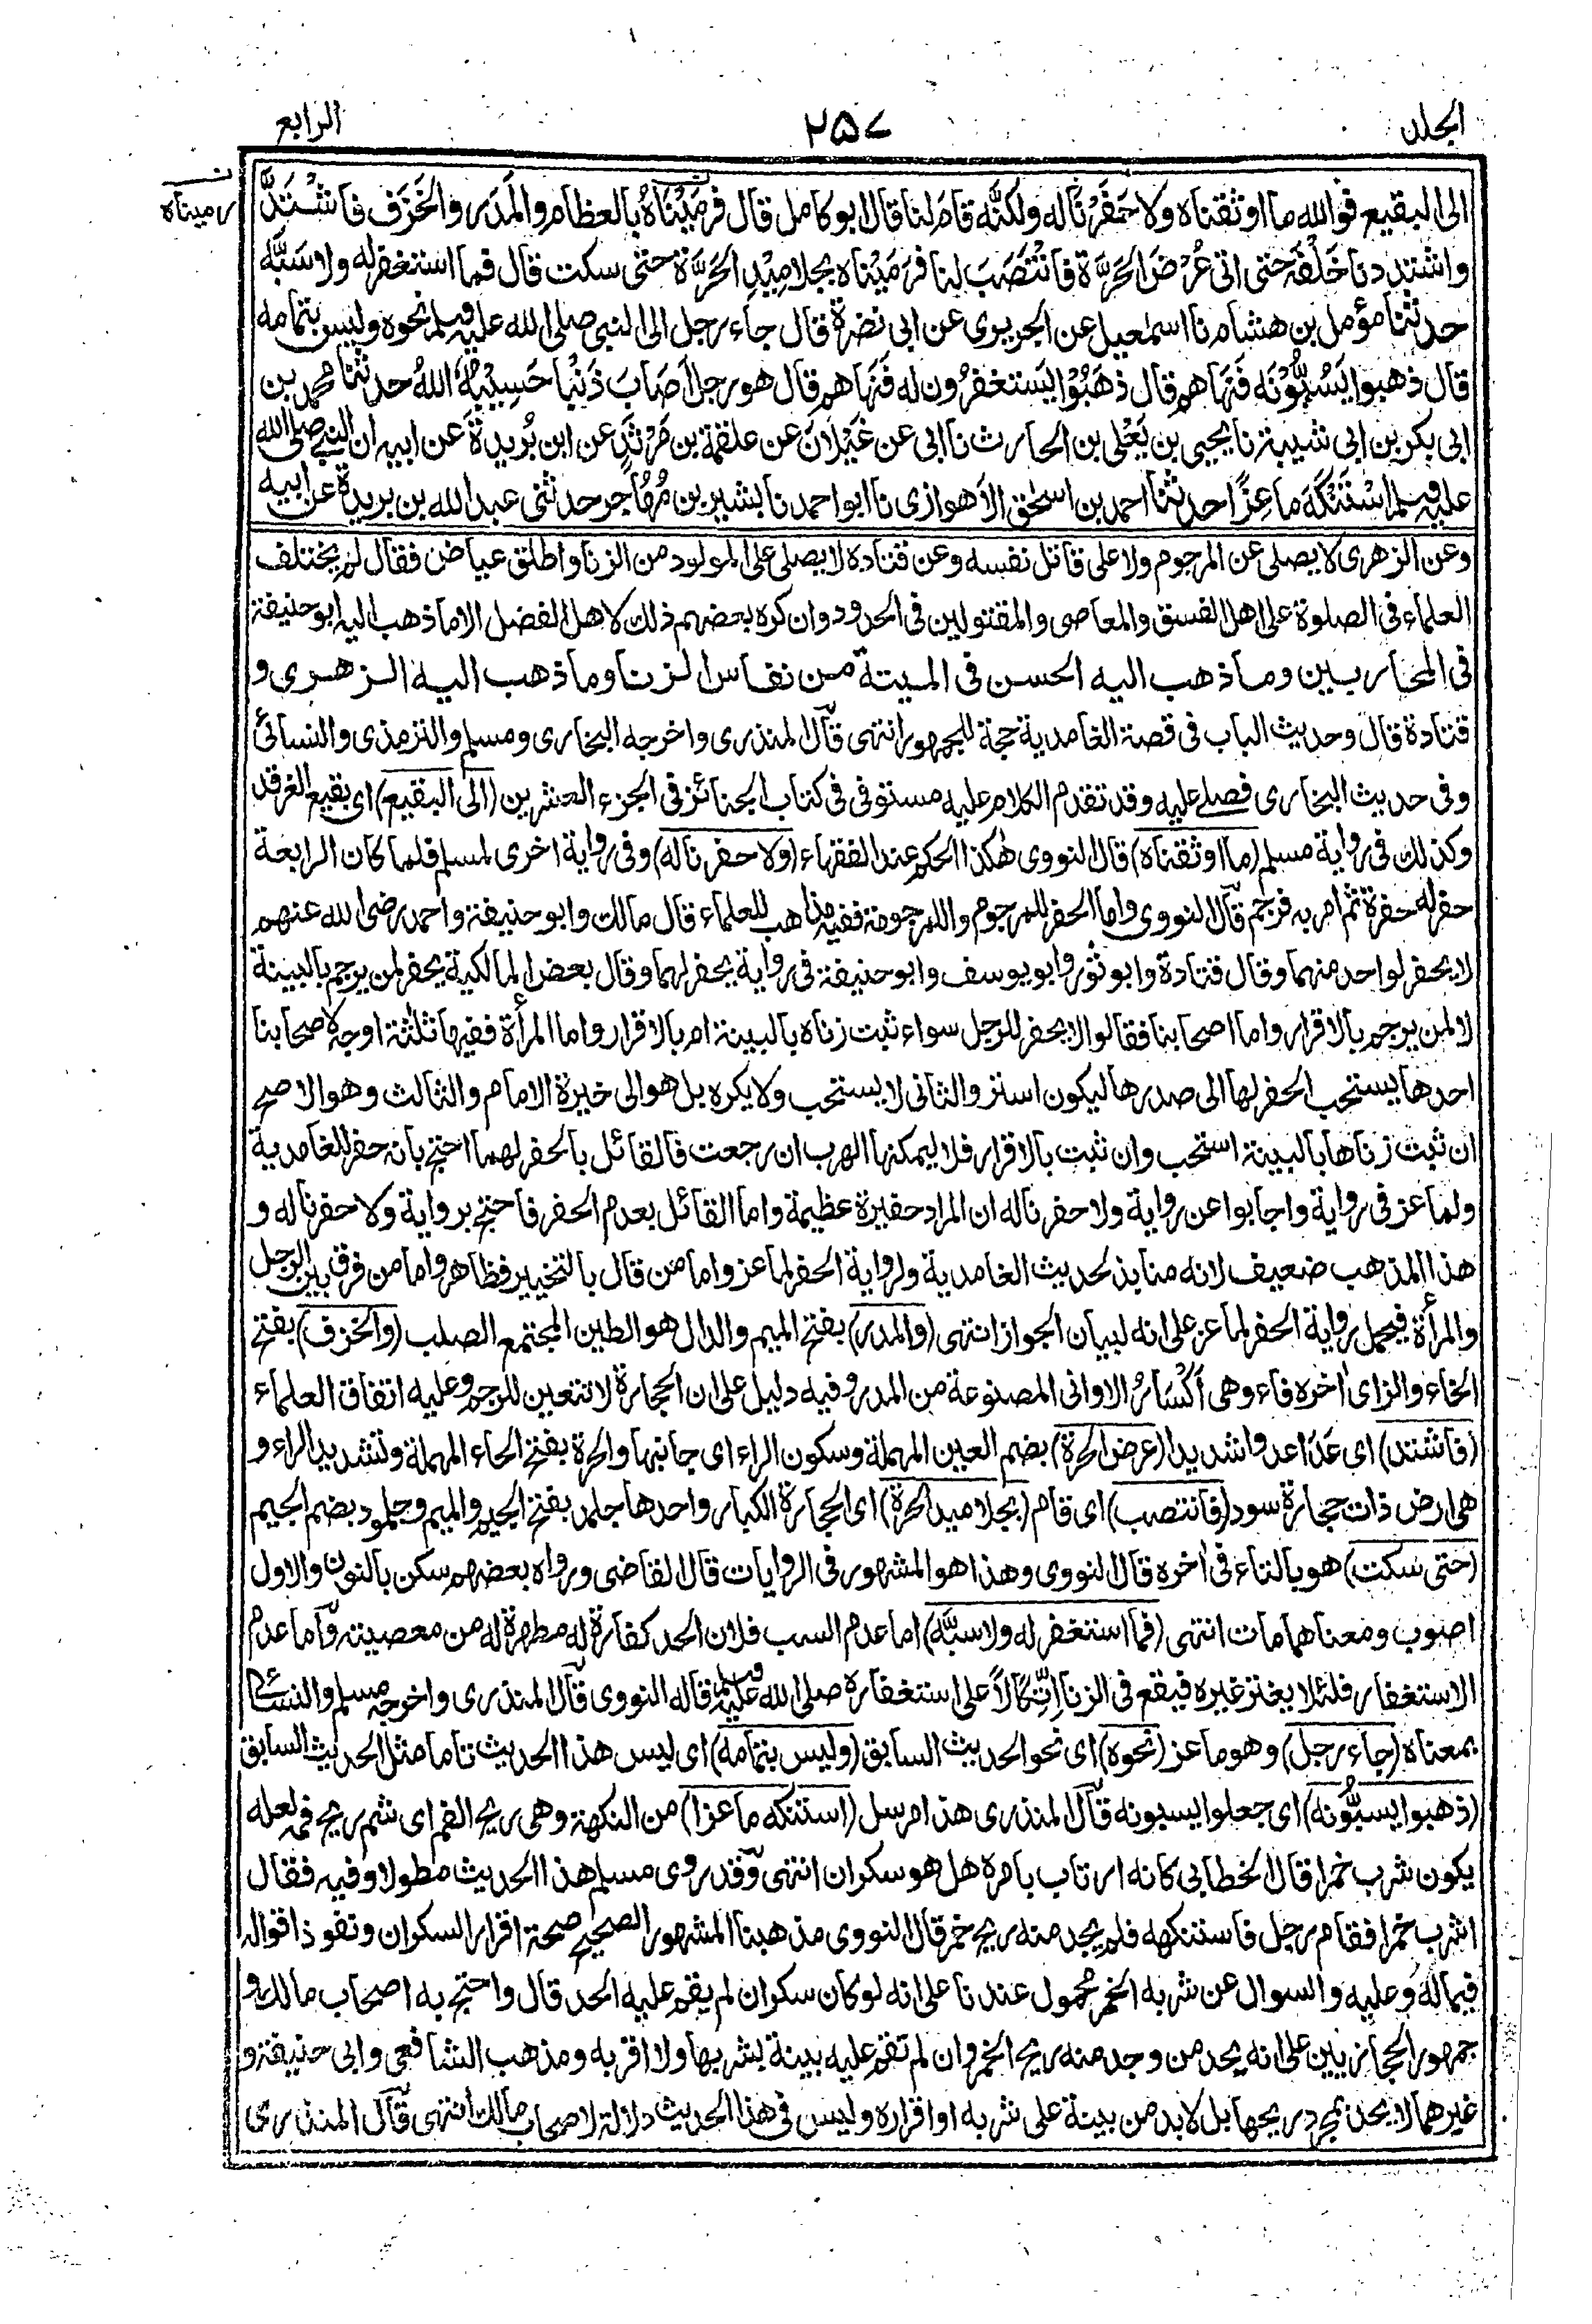 المجلد ٢٥٧ الرابع
الى البقيع فوالله ما اوثقناه ولا حَفَرْنَا له ولكنَّه قام لنا قال ابو كامل قال فرمَيْنَاهُ بالعظام والمَدَر والخَزَف فاشْتَدَّ
رميناه
واشتددنا خَلْفَه حتى اتى عُرْضَ الحَرَّة فانْتَصَبَ لنا فرَمَيْناه بجلامِيْدِ الحَرَّة حتى سكت قال فما استغفر له ولا سَبَّه
حدثنا مؤمل بن هشام نا اسمٰعيل عن الجريرى عن ابى نضرة قال جاء رجل الى النبى صلى الله عليه وسلم نحوه وليس بتمامه
قال ذهبوا يَسُبُّوْنَه فَنَهاهم قال ذهَبُوْا ليَستغفرُون له فَنَهاهم قال هو رجل اَصَابَ ذَنْبًا حَسِيْبُهُ اللهُ حدثنا محمد بن
ابى بكر بن ابى شيبة نا يحيى بن يَعْلى بن الحارث نا ابى عن غَيْلَانَ عن علقمة بن مَرْثَدٍ عن ابن بُرَيدةَ عن ابيه ان النبى صلى الله
عليه وسلم اسْتَنْكَهَ ماعِزًا حدثنا احمد بن اسحٰق الاَهوازى نا ابو احمد نا بشير بن مُهَاجر حدثنى عبد الله بن بريدة عن ابيه
وعن الزهرى لا يصلى عن المرجوم ولا على قاتل نفسه وعن قتادة لا يصلى على المولود من الزنا واطلق عياض فقال لم يختلف
العلماء فى الصلوة على اهل الفسق والمعاصى والمقتولين فى الحدود وان كره بعضهم ذلك لاهل الفضل الا ما ذهب اليه ابو حنيفة
فى المحاربين وما ذهب اليه الحسن فى الميتة من نفاس الزنا وما ذهب اليه الزهرى و
قتادة قال وحديث الباب فى قصة الغامدية حجة للجمهور انتهى قال المنذرى واخرجه البخارى ومسلم والترمذى والنسائى
وفى حديث البخارى فصلى عليه وقد تقدم الكلام عليه مستوفى فى كتاب الجنائز فى الجزء العشرين (الى البقيع) اى بقيع الغرقد
وكذلك فى رواية مسلم (ما اوثقناه) قال النووى هٰكذا الحكم عند الفقهاء (ولا حفرنا له) وفى رواية اخرى لمسلم فلما كان الرابعة
حفر له حفرة ثم امر به فرجم قال النووى واما الحفر للمرجوم والمرجومة ففيه مذاهب للعلماء قال مالك وابو حنيفة واحمد رضى الله عنهم
لا يحفر لواحد منهما وقال قتادة وابو ثور وابو يوسف وابو حنيفة فى رواية يحفر لهما وقال بعض المالكية يحفر لمن يرجم بالبينة
لا لمن يرجم بالاقرار واما اصحابنا فقالوا لا يحفر للرجل سواء ثبت زناه بالبينة ام بالاقرار واما المرأة ففيها ثلثة اوجه لاصحابنا
احدها يستحب الحفر لها الى صدرها ليكون استر والثانى لا يستحب ولا يكره بل هو الى خيرة الامام والثالث وهو الاصح
ان ثبت زناها بالبينة استحب وان ثبت بالاقرار فلا ليمكنها الهرب ان رجعت فالقائل بالحفر لهما احتج بانه حفر للغامدية
ولماعز فى رواية واجابوا عن رواية ولا حفرنا له ان المراد حفيرة عظيمة واما القائل بعدم الحفر فاحتج برواية ولا حفرنا له و
هذا المذهب ضعيف لانه منابذ لحديث الغامدية ولرواية الحفر لماعز واما من قال بالتخيير فظاهر واما من فرق بين الرجل
والمرأة فيحمل رواية الحفر لماعز على انه لبيان الجواز انتهى (والمدر) بفتح الميم والدال هو الطين المجتمع الصلب (والخزف) بفتح
الخاء والزاى اٰخره فاء وهى اَكْسَارُ الاوانى المصنوعة من المدر وفيه دليل على ان الحجارة لا تتعين للرجم وعليه اتفاق العلماء
(فاشتد) اى عَدَا عدوا شديدا (عرض الحرة) بضم العين المهملة وسكون الراء اى جانبها والحرة بفتح الحاء المهملة وتشديد الراء و
هى ارض ذات حجارة سود (فانتصب) اى قام (بجلاميد الحرة) اى الحجارة الكبار واحدها جلمد بفتح الجيم والميم وجلمود بضم الجيم
(حتى سكت) هو بالتاء فى اٰخره قال النووى وهذا هو المشهور فى الروايات قال القاضى ورواه بعضهم سكن بالنون والاول
اصوب ومعناهما مات انتهى (فما استغفر له ولا سبَّه) اما عدم السب فلان الحد كفارة له مطهرة له من معصيته واما عدم
الاستغفار فلئلا يغتر غيره فيقع فى الزنا اِتِّكَالاً على استغفاره صلى الله عليه وسلم قاله النووى قال المنذرى واخرجه مسلم والنسائى
بمعناه (جاء رجل) وهو ماعز (نحوه) اى نحو الحديث السابق (وليس بتمامه) اى ليس هذا الحديث تاما مثل الحديث السابق
(ذهبوا يسبُّونه) اى جعلوا يسبونه قال المنذرى هذا مرسل (استنكه ماعزا) من النكهة وهى ريح الفم اى شم ريح فمه لعله
يكون شرب خمرا قال الخطابى كانه ارتاب بامره هل هو سكران انتهى وقد روى مسلم هذا الحديث مطولا وفيه فقال
اشرب خمرا فقام رجل فاستنكهه فلم يجد منه ريح خمر قال النووى مذهبنا المشهور الصحيح صحة اقرار السكران ونفوذ اقواله
فيما له وعليه والسوال عن شربه الخمر محمول عندنا على انه لو كان سكران لم يقم عليه الحد قال واحتج به اصحاب مالك و
جمهور الحجازيين على انه يحد من وجد منه ريح الخمر وان لم تقم عليه بينة بشربها ولا اقر به ومذهب الشافعى وابى حنيفة و
غيرهما لا يحد بمجرد ريحها بل لا بد من بينة على شربه او اقراره وليس فى هذا الحديث دلالة لاصحاب مالك انتهى قال المنذرى